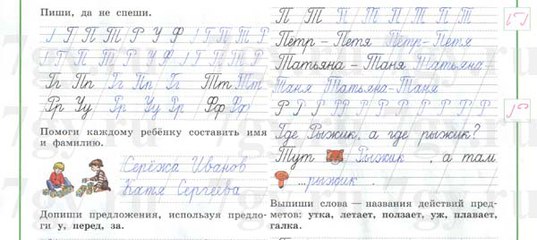 Пиши, да не спеши.
Г П Т Р У Ф Г П Т Р
Г П Т Р У Ф Г П Т Р
Гг Пп Гг Пп Гг Тт Тт
Рр Уу Рр Уу Рр Фф Фф
Помоги каждому ребёнку составить имя
и фамилию.
Серёжа Иванов
Катя Сергеева
Допиши предложения, используя предло-
ги у, перед, за.
П Т П Т П Т П Т
Пётр – Петя Пётр – Петя
Татьяна – Таня Татьяна –
Таня Татьяна – Таня
Р Р Р Р Р Р Р Р Р Р Р
Где Рыжик, а где рыжик?
Тут Рыжик, а там
...рыжик.
Выпиши слова — названия действий пред-
метов: утка, летает, ползает, уж, плавает,
галка.